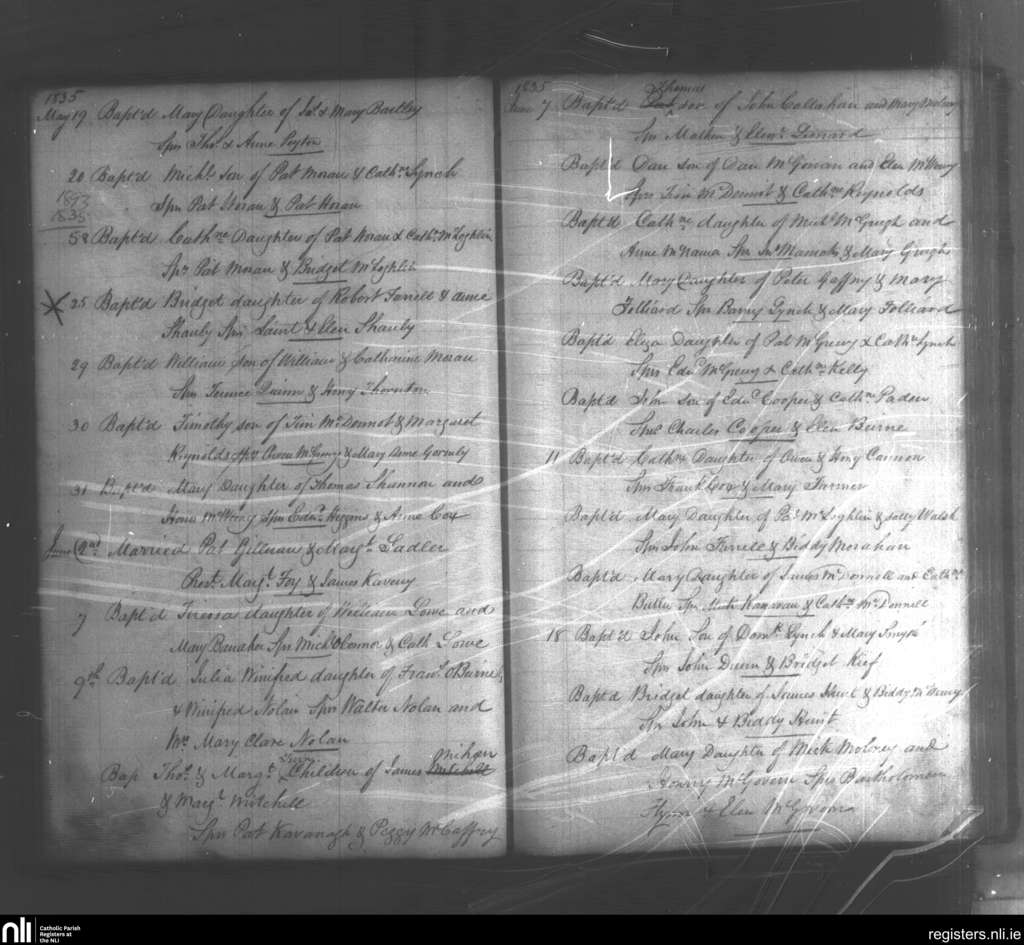 1835
May 19 Bapt'd Mary Daughter of Jas. & Mary Bartley
Sprs Thos. & Anne Peyton
20 Bapt'd Michl. son of Pat Moran & Cathne Lynch
1893
1835
Spr Pat Horan & Pat Horan
58 Bapt'd Cathne Daughter of Pat Horan & Cathne McLoghlin
Sprs Pat Moran & Bridget McLoghlin
25 Bapt'd Bridget daughter of Robert Farrell & Anne
Shanly Sprs Laint & Elen Shanly
29 Bapt'd William son of William & Catharine Moran
Sprs Terence Quinn & Hony Thornton
30 Bapt'd Timothy son of Tim McDonnot & Margaret
Reynolds Sprs Owen & Mary Anne Gormly
31 Bapt'd Mary Daughter of Thomas Shannon and
Sprs Edwd. Higgins & Anne Cox
June 2nd Married Pat Gillnan & Margt. Sadler
Prest. Margt. Foy & James Kaveny
7 Bapt'd Teressa daughter of William Lowe and
Mary Sprs Michl OConnor & Cath Lowe
9th Bapt'd Julia Winifred daughter of Frans. OBeirne
& Winifred Nolan Sprs Walter Nolan and
Mrs Mary Clare Nolan
Mihan
Bap Thos. & Margt. Children of James Mitchell
& Margt. Mitchell
Sprs Pat Kavanagh & Peggy McCaffry
1835
Thomas
June 7 Bapt'd son of John Callahan and Mary Molany
Sprs Mathew & Elenr. Dinnard
Bapt'd Dan son of Dan McGowan and Elen
Sprs Tim McDonnot & Cathne Reynolds
Bapt'd Cathne daughter of Michl. McGrugh and
Anne McNama Sprs & Mary
Bapt'd Mary Daughter of Peter Gaffny & Mary
Folliard Sprs Barny Lynch & Mary Folliard
Bapt'd Eliza Daughter of Pat McGreevy & Cathne Lynch
Sprs Edwd. McGreevy & Cathne Kelly
Bapt'd John son of Edwd. Cooper & Cathne Paden
Sprs Charles Cooper & Elen Beirne
11 Bapt'd Cathne Daughter of Owen & Hony Cannon
Sprs Frank Cox & Mary Farmer
Bapt'd Mary Daughter of McLoghlin & Sally Walsh
Sprs John Farrell & Biddy Monahan
Bapt'd Mary Daughter of James McDonnell and Cathne
Butler Sprs Mick & Cathne McDonnell
18 Bapt'd John Son of Domk. Lynch & Mary Smyth
Sprs John Dunn & Bridget Kief
Bapt'd Bridget daughter of James Hunt & Biddy
Sprs John & Biddy Hunt
Bapt'd Mary Daughter of Mick Moloney and
McGovern Sprs Bartholomew
Flynn & Elen
nli
Catholic Parish
Registers at
the NLI
registers.nli.ie